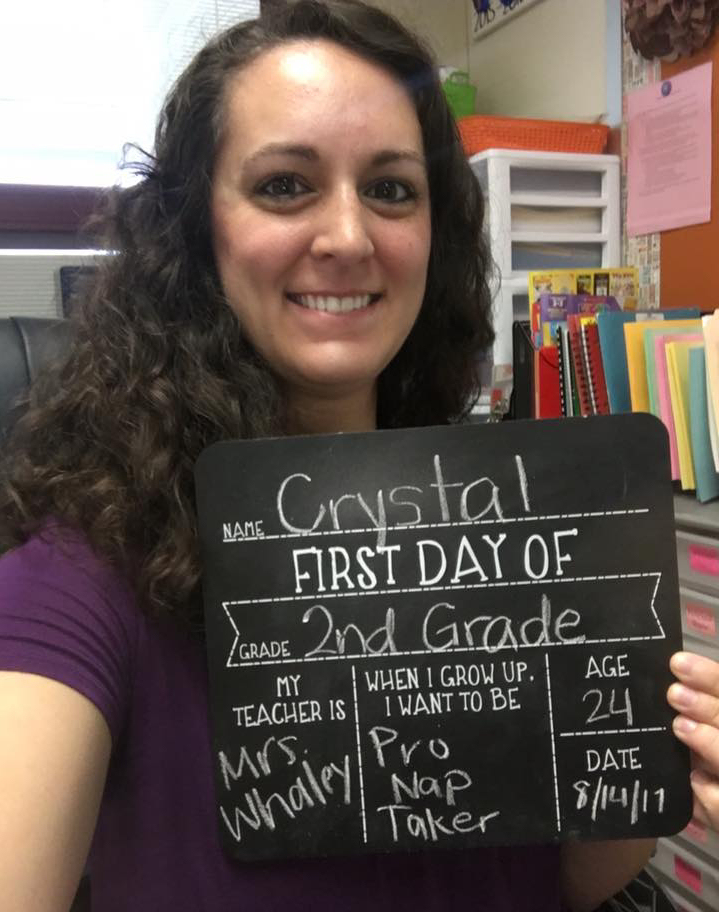 NAME Crystal
FIRST DAY OF
GRADE 2nd Grade
MY
TEACHER IS
Mrs.
Whaley
WHEN I GROW UP,
I WANT TO BE
Pro
Nap
Taker
AGE
24
DATE
8/14/17